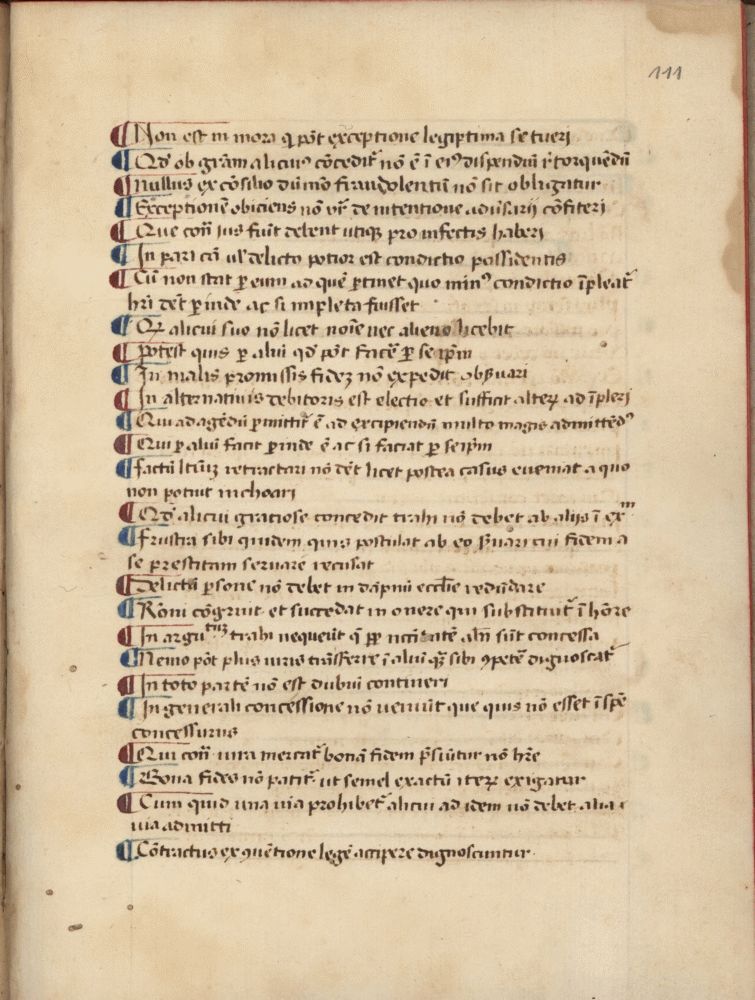 111
¶ Non est in mora q̄ pōt exceptione legiptima se tueri
¶ Qd̄ ob grām alicui᷒ cōcedit᷑ nō ē ī ei᷒ dispendiū rᵉtorquēdū
¶ Nullus ex cōsilio dūmō fraudolentū nō sit obligatur
¶ Exceptionē obiciens nō vr̄ de intentione adūsarij cōfiteri
¶ Que con̄ ius fiūt debent utiqꝫ pro infectis haberi
¶ In pari cā ul̓ delicto potior est condictio possidentis
¶ Cū non stat ꝑ eum ad quē ꝑtinet quo min᷒ condictio īpleat᷑
hr̄i dēt ꝑinde ac si impleta fuisset
¶ Qꝝ alicui suo nō licet noīe nec alieno licebit
¶ Potest quis ꝑ aliū qd̄ pōt facē ꝑ se ip̄m
¶ In malis promissis fidez nō expedit obẜuari
¶ In alternatiuis debitoris est electio et sufficit alteꝝ ad īpleri
¶ Qui ad agēdū ꝑmittit᷑ ē ad excipiendū multo magis admittēd᷒
¶ Qui ꝑ aliū facit ꝑinde ē ac si faciat ꝑ seip̄m
¶ factū ltīūꝫ retractari nō dēt licet postea casus eueniat a quo
non potiut inchoari
¶ Qd̄ alicui gratiose concedit᷑ trahi nō debet ab alijs ī exᵐ
¶ Frustra sibi quidem quis postulat ab eo ẜuari cui fidem a
se prestitam seruare recusat
¶ Delictū ꝑsone nō debet in dāpnū ecclīe redūdare
¶ Rōni cōgruit et succedat in onere qui substituit᷑ ī hōre
¶ In arguᵗᵘꝫ trahi nequeūt q̄ ꝓp nccītātē aln̄ sūt concessa
¶ Nemo pōt plus iuris trāsferre ī aliū qꝫ sibi ꝯpetē dignoscat᷑
¶ In toto partē nō est dubiū contineri
¶ In generali concessione nō veniūt que quis nō esset ī spē
concessurus
¶ Qui con̄ iura mercat᷑ bonā fidem p̄sūitur nō hr̄e
¶ Bona fides nō patit᷑ ut semel exactū iteꝝ exigatur
¶ Cum quid una via prohibet᷑ alicui ad idem nō debet alia
uia admitti
¶ Cōtractus ex ꝯuētione legē accipere dignoscuntur